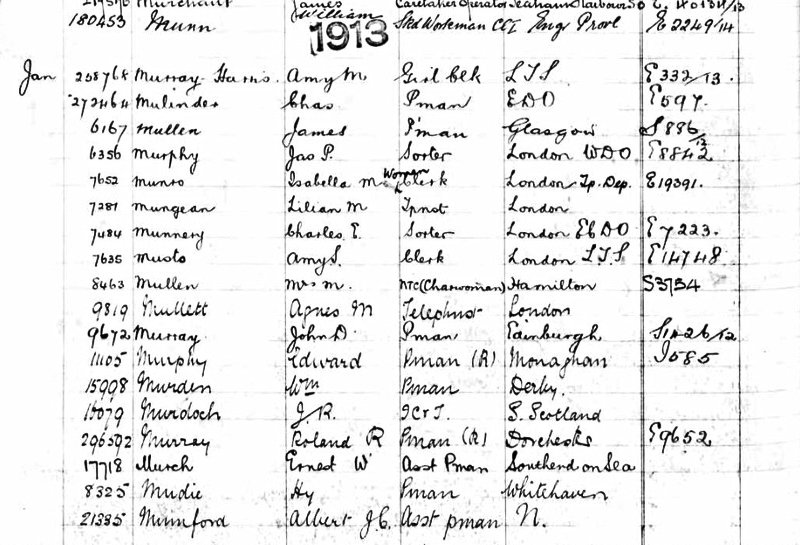 Murchant James Caretaker Operator Seaham Harbour SO
180453 Munn William Skd Workman CCI Engr Provl E 2249/14
1913
Jan 258768 Murray-Harris. Amy M Girl Clk LTS E 332/13.
272464 Mulinder Chas Pman EDO E597.
6167 Mullen James P'man Glasgow S886/12
6356 Murphy Jas P. Sorter London WDO E8842
7652 Munro Isabella M Woman Clerk London Tp. Dep. E19391.
7281 Mungean Lilian M Tpnst London
7484 Munnery Charles E. Sorter London ECDO E7223.
7635 Musto Amy S. Clerk London LTS E14748.
8463 Mullen Mrs M. NTC (Charwoman) Hamilton
9819 Mullett Agnes M Telephnst London
9672 Murray John D. Pman Edinburgh S1426/12
11105 Murphy Edward Pman (R) Monaghan I585
15998 Murden Wm Pman Derby.
Murdoch J. R. SC&T. S. Scotland
296592 Murray Roland R Pman (R) Dorchester E9652
17718 Murch Ernest W Asst Pman Southend on Sea
8325 Mudie Hy Pman Whitehaven
21385 Mumford Albert J C. Asst pman N.